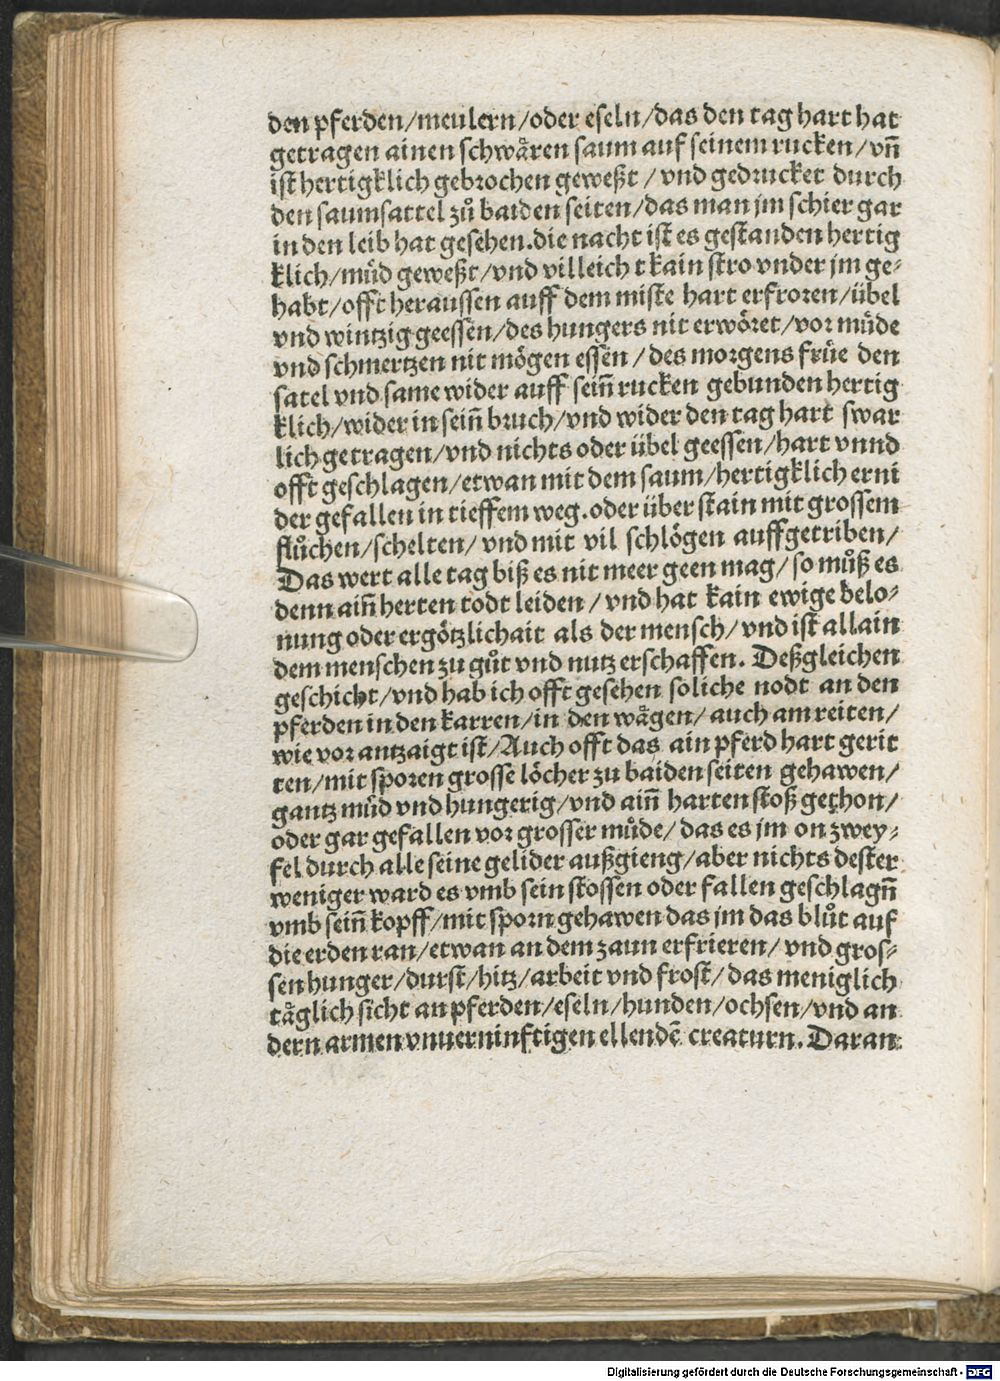 den pferden/meulern/oder eseln/das den tag hart hat
getragen ainen schwaͤren saum auf seinem rucken/vnn̄
ist hertigklich gebrochen geweßt/vnd gedrucket durch
den saumsattel zuͦ baiden seiten/das man jm schier gar
in den leib hat gesehen.die nacht ist es gestanden hertig
klich/muͤd geweßt/vnd villeich t kain stro vnder jm ge⸗
habt/offt heraussen auff dem miste hart erfroren/übel
vnd wintzig geessen/des hungers nit erwoͤret/vor muͤde
vnd schmertzen nit moͤgen essen/des morgens fruͤe den
satel vnd same wider auff sein̄ rucken gebunden hertig
klich/wider in sein̄ bruch/vnd wider den tag hart swar
lich getragen/vnd nichts oder übel geessen/hart vnnd
offt geschlagen/etwan mit dem saum/hertigklich erni
der gefallen in tieffem weg.oder über stain mit grossem
fluͦchen/schelten/vnd mit vil schloͤgen auffgetriben/
Das wert alle tag biß es nit meer geen mag/so muͦß es
denn ain̄ herten todt leiden/vnd hat kain ewige belo⸗
nung oder ergoͤtzlichait als der mensch/vnd ist allain
dem menschen zu guͦt vnd nutz erschaffen. Deßgleichen
geschicht/vnd hab ich offt gesehen soliche nodt an den
pferden in den karren/in den waͤgen/auch am reiten/
wie vor antzaigt ist/Auch offt das ain pferd hart gerit
ten/mit sporen grosse loͤcher zu baiden seiten gehawen/
gantz muͤd vnd hungerig/vnd ain̄ harten stoß gethon/
oder gar gefallen vor grosser muͤde/das es jm on zwey⸗
fel durch alle seine gelider außgieng/aber nichts dester
weniger ward es vmb sein stossen oder fallen geschlagn̄
vmb sein̄ kopff/mit sporn gehawen das jm das bluͦt auf
die erden ran/etwan an dem zaun erfrieren/vnd gros⸗
sen hunger/durst/hitz/arbeit vnd frost/das meniglich
taͤglich sicht an pferden/eseln/hunden/ochsen/vnd an
dern armen vnuerninftigen ellendē creaturn. Daran
Digitalisierung gefördert durch die Deutsche Forschungsgemeinschaft - DFG